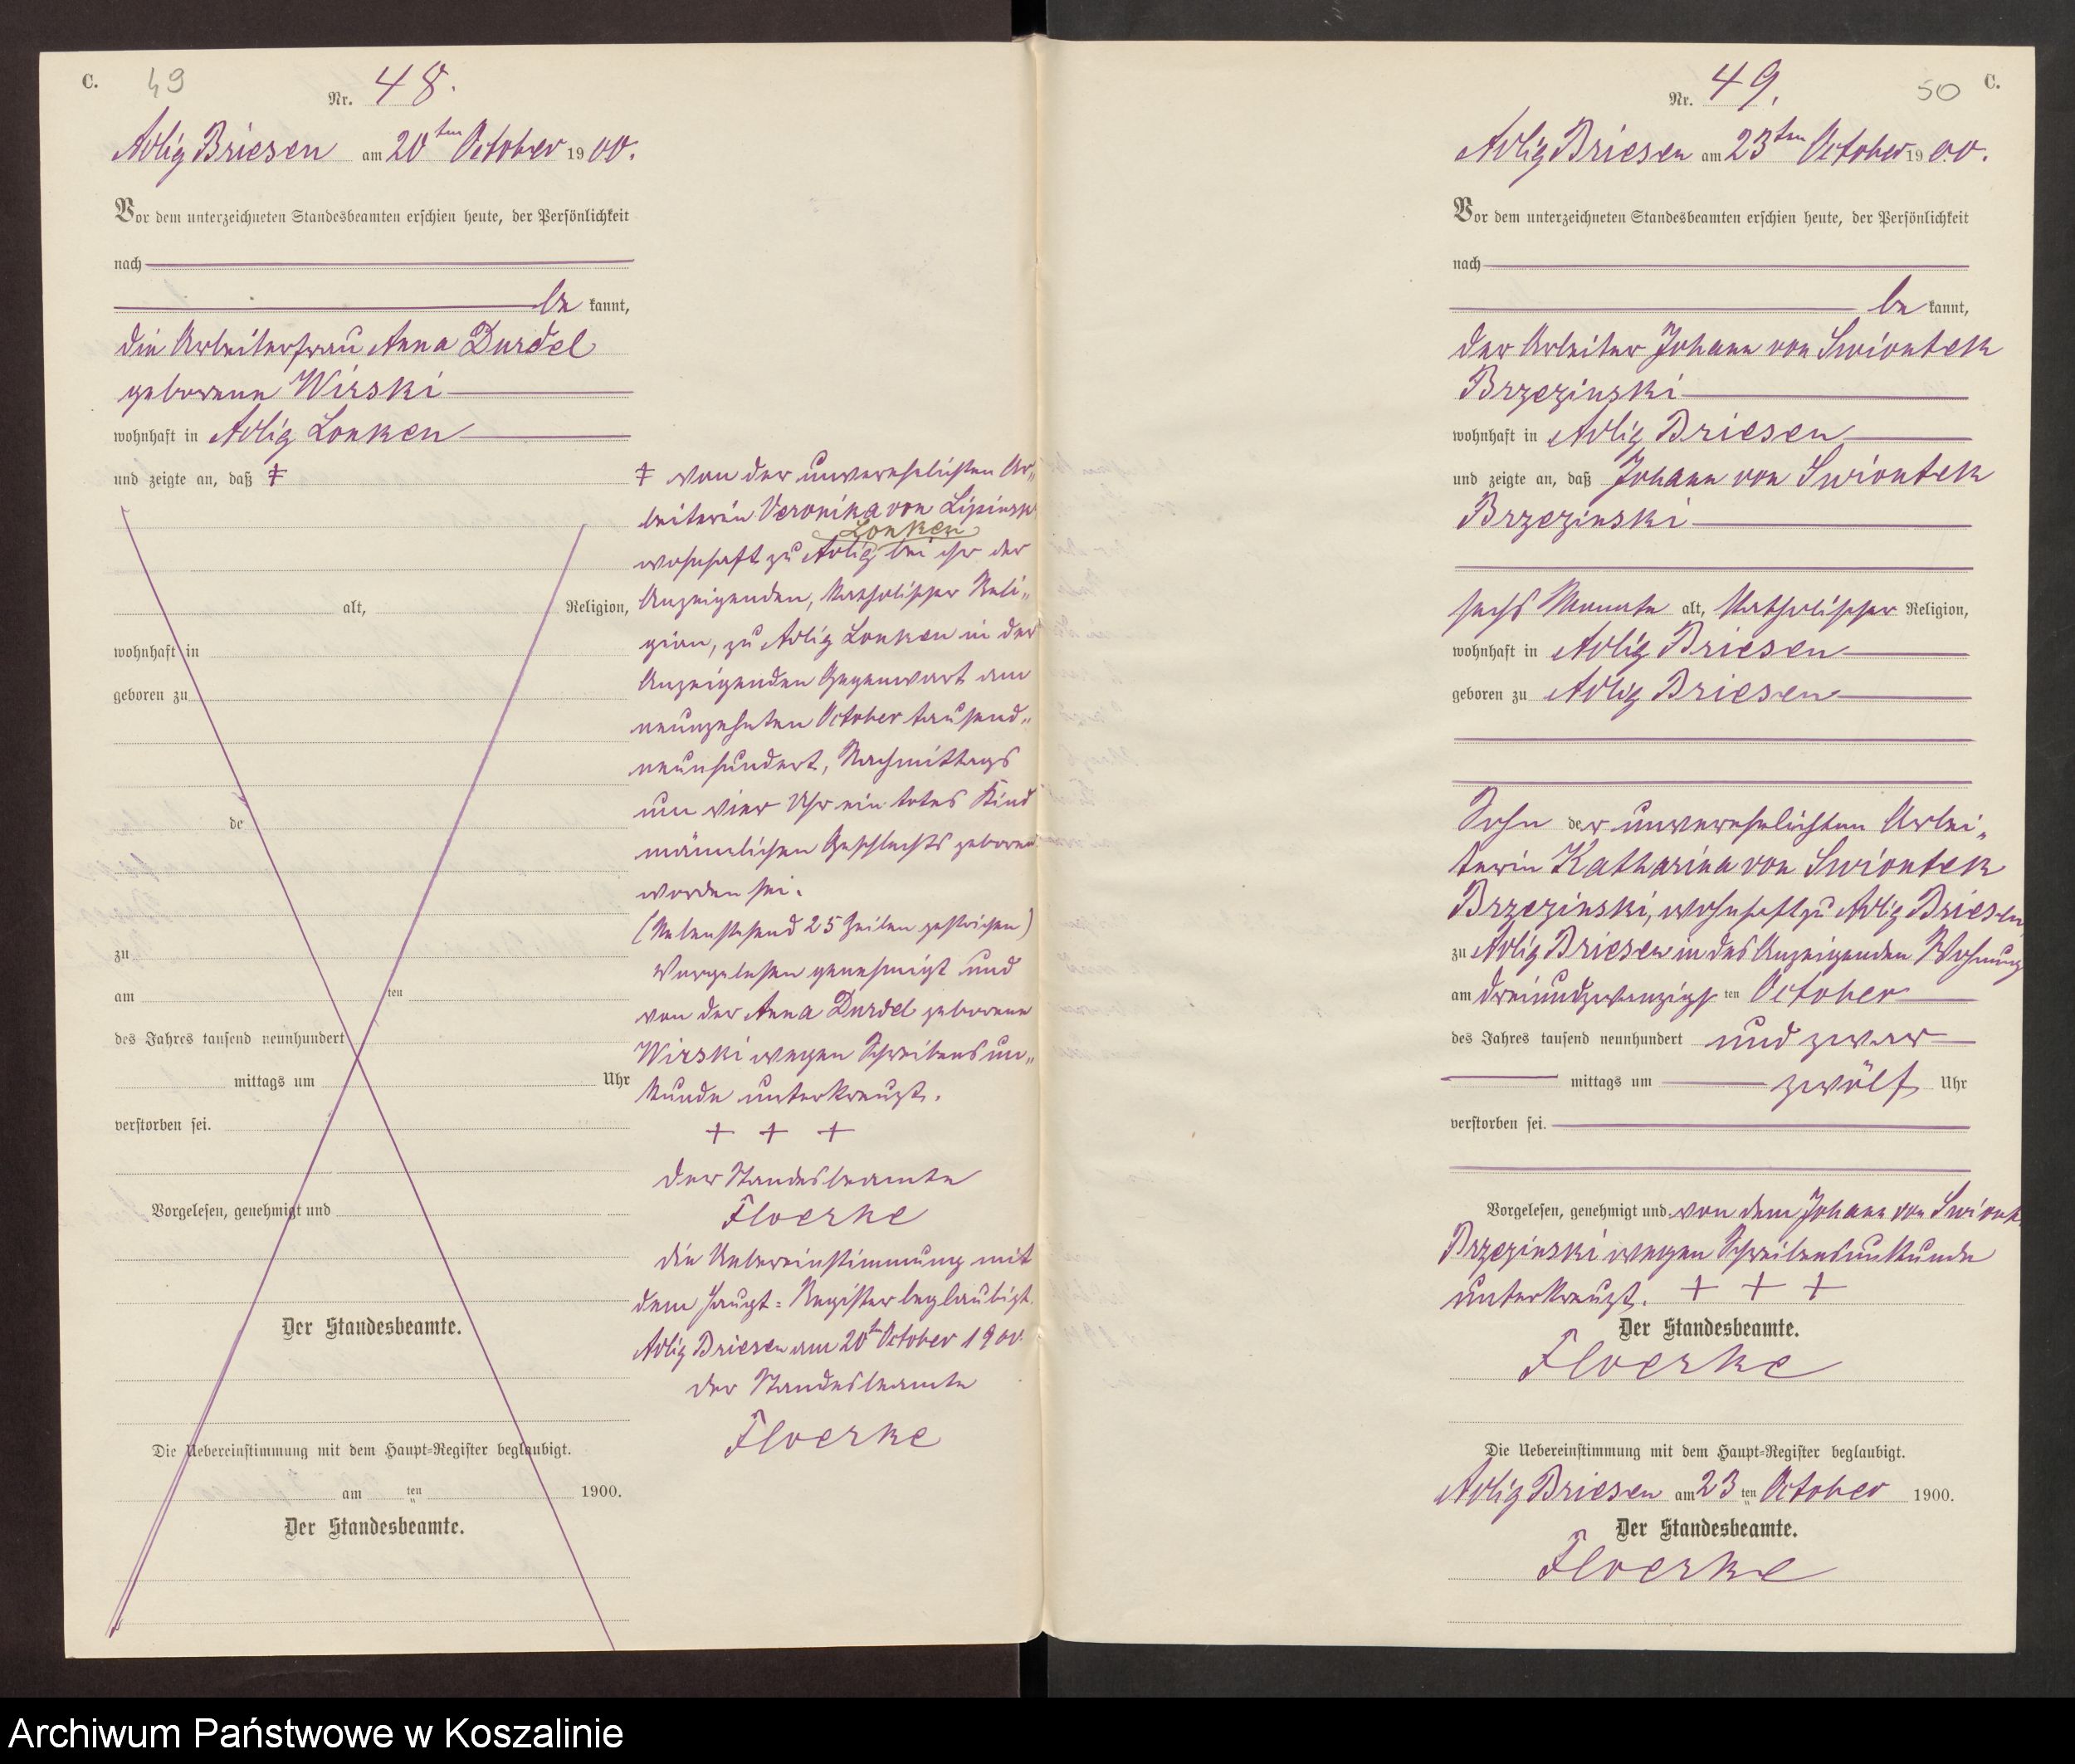 C.
49
Nr. 48.
Adlig Briesen am 20ten October 1900.
Vor dem unterzeichneten Standesbeamten erschien heute, der Persönlichkeit
nach
be kannt,
die Arbeiterfrau Anna Durdel
geborene Wirski
wohnhaft in Adlig Lonken
und zeigte an, daß ‡
alt, Religion,
wohnhaft in
geboren zu
de
zu
am ten
des Jahres tausend neunhundert
mittags um Uhr
verstorben sei.
Vorgelesen, genehmigt und
Der Standesbeamte.
Die Uebereinstimmung mit dem Haupt=Register beglaubigt.
am ten 1900.
Der Standesbeamte.
‡ von der unverehelichten Ar„
beiterin Veronika von Lipinsk
Lonken
wohnhaft zu Adlig bei ihr der
Anzeigenden, katholischer Reli„
gion, zu Adlig Lonken in der
Anzeigenden Gegenwart am
neunzehnten October tausend„
neunhundert, Nachmittags
um vier Uhr ein totes Kind
männlichen Geschlechts geboren
worden sei.
(Nebenstehend 25 Zeilen gestrichen)
Vorgelesen genehmigt und
von der Anna Durdel geborene
Wirski wegen Schreibensun„
kunde unterkreuzt.
+ + +
der Standesbeamte
Floerke
die Uebereinstimmung mit
dem Haupt=Register beglaubigt.
Adlig Briesen am 20ten October 1900.
der Standesbeamte
Floerke
C.
50
Nr. 49.
Adlig Briesen am 23ten October 1900.
Vor dem unterzeichneten Standesbeamten erschien heute, der Persönlichkeit
nach
be kannt,
der Arbeiter Johann von Swiontek
Brzezinski
wohnhaft in Adlig Briesen
und zeigte an, daß Johann von Swiontek
Brzezinski
sechs Monate alt, katholischer Religion,
wohnhaft in Adlig Briesen
geboren zu Adlig Briesen
Sohn der unverehelichten Arbei„
terin Katharina von Swiontek
Brzezinski, wohnhaft zu Adlig Briesen,
zu Adlig Briesen in des Anzeigenden Wohnung
am dreiundzwanzigs ten October
des Jahres tausend neunhundert und zwar
mittags um zwölf Uhr
verstorben sei.
Vorgelesen, genehmigt und von dem Johann von Swiontk
Brzezinski wegen Schreibensunkunde
unterkreuzt. + + +
Der Standesbeamte.
Floerke
Die Uebereinstimmung mit dem Haupt=Register beglaubigt.
Adlig Briesen am 23 ten October 1900.
Der Standesbeamte.
Floerke
Archiwum Państwowe w Koszalinie